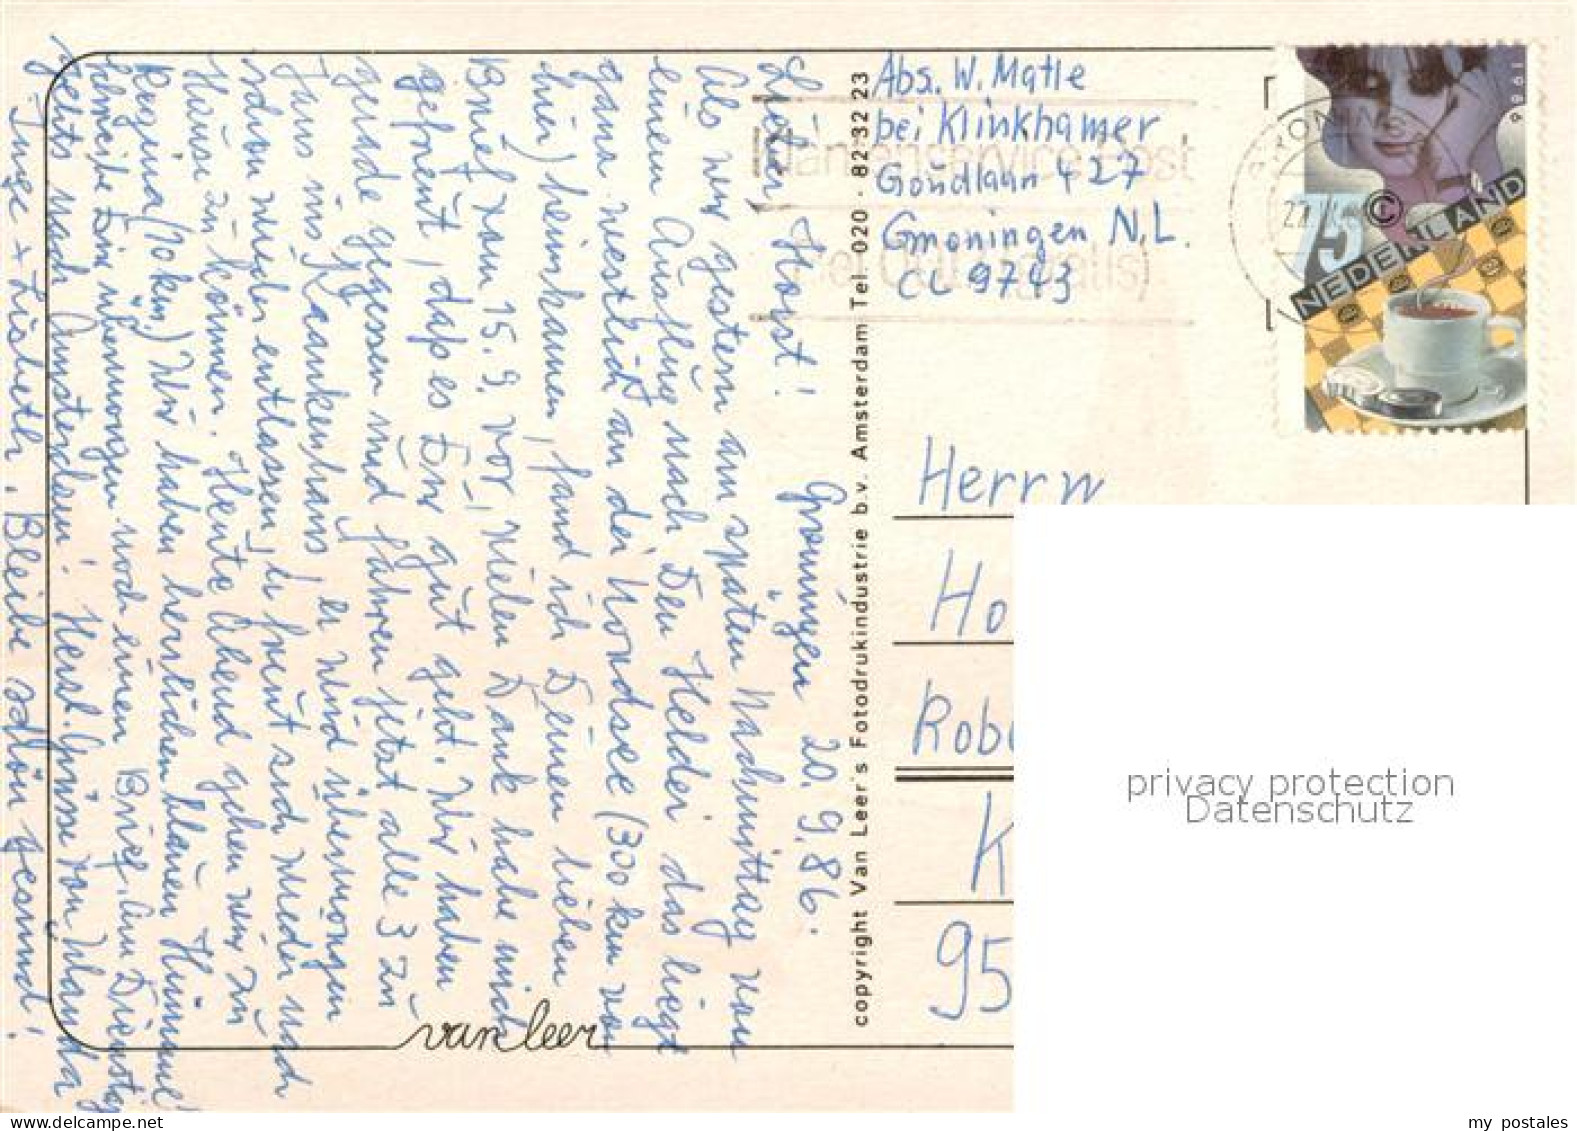 Groningen 20.9.86.
Lieber Horst!
Als wir gestern am späten Nachmittag von
einem Ausflug nach Den Helder das liegt
ganz westlich an der Nordsee (300 km von
hier) heimkamen, fand ich Deinen lieben
Brief vom 15.9. vor, vielen Dank habe mich
gefreut, daß es Dir gut geht. Wir haben
gerade gegessen und fahren jetzt alle 3 zu
Jans ins Krankenhaus er wird übermorgen
schon wieder entlassen, er freut sich wieder nach
Hause zu können. Heute Abend gehen wir zu
Regina (10 km) Wir haben herrlichen blauen Himmel
schreibe Dir übermorgen noch einen Brief. Am Dienstag
gehts nach Amsterdam! Herzl. Grüsse von Wanda
Inge + Lisbeth. Bleibe schön gesund!
van leer
copyright Van Leer's Fotodrukindustrie b.v. Amsterdam Tel. 020 - 82 32 23
Abs. W. Matle
bei Klinkhamer
Gondlaan 427
Groningen N.L.
CL 9743
NEDERLAND
75 c
1986
Herrn
Ho
Rob
K
95
privacy protection
Datenschutz
www.delcampe.net
my_postales